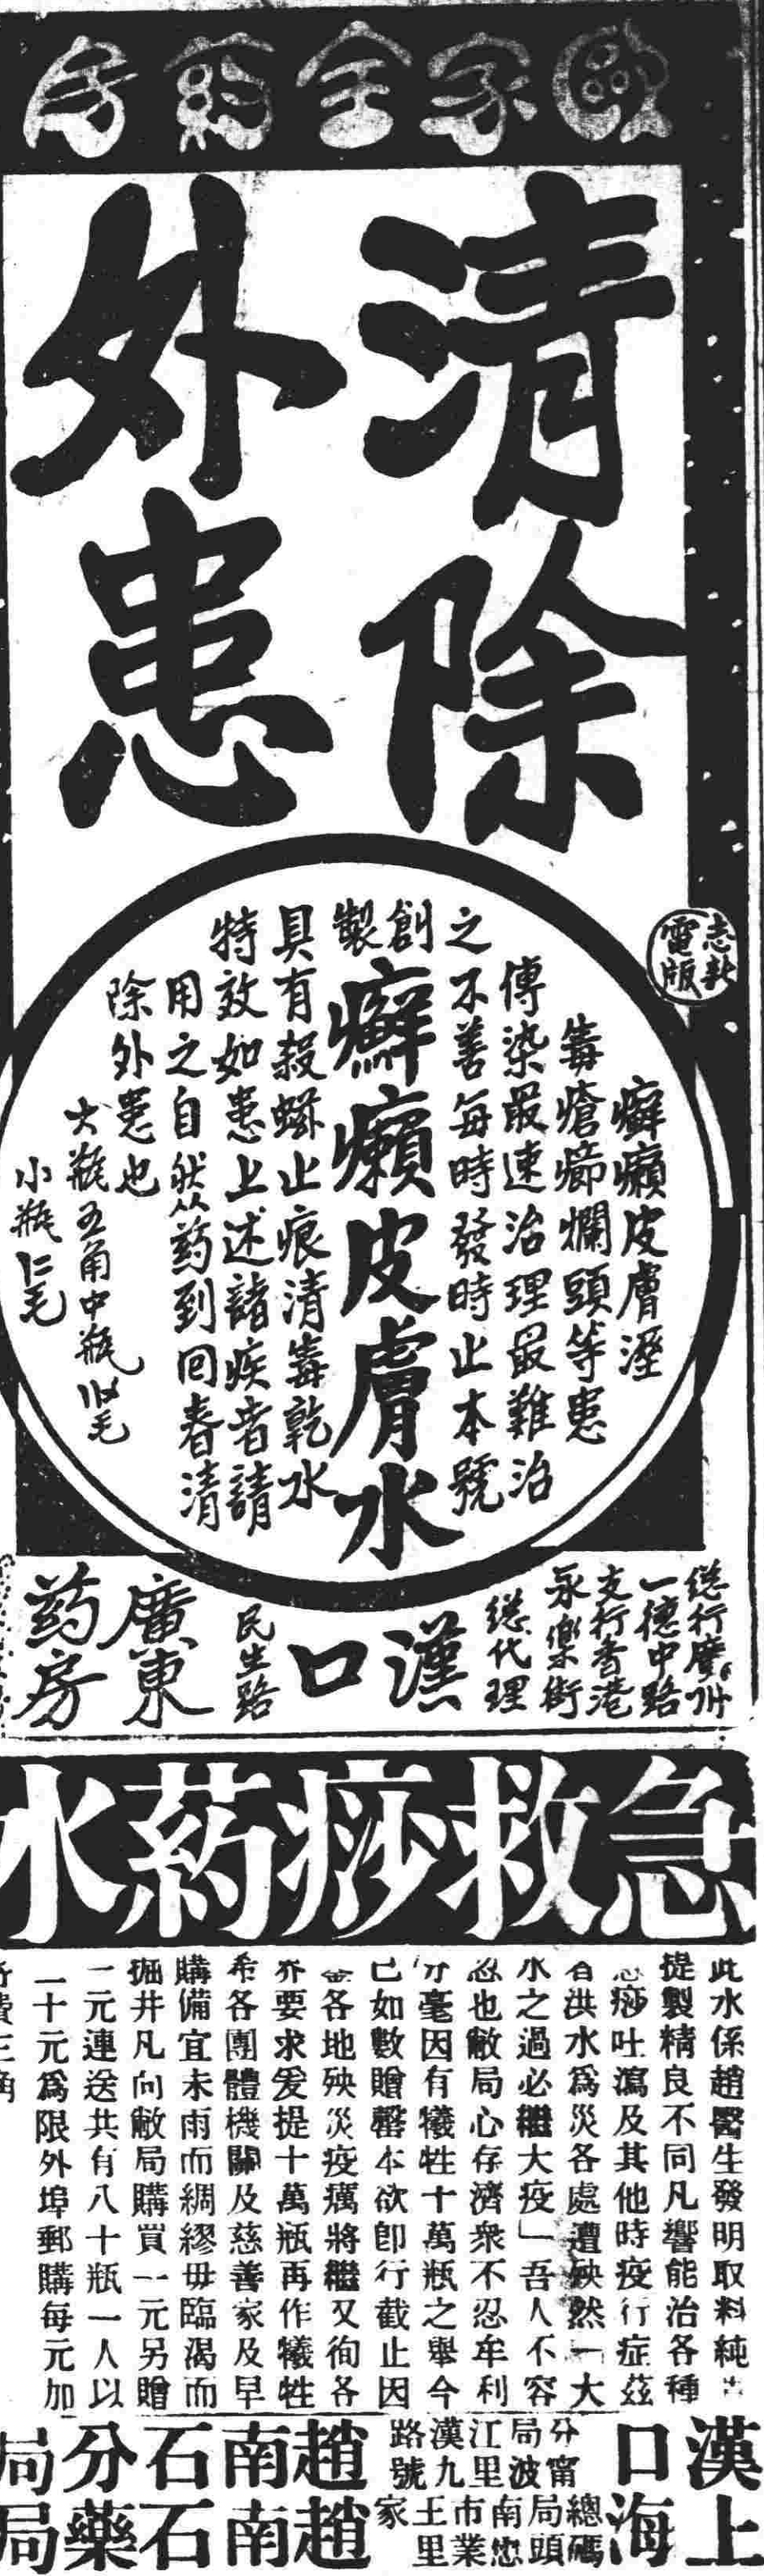 歐家全药房
清除
外患
志新
電版
癬癩皮膚溼
毒瘡癤爛頭等患
傳染最速治理最難治
之不善每時發時止本號
創製
癬癩皮膚水
具有殺蟲止痕清毒乾水
特效如患上述諸疾者請
用之自然药到回春清
除外患也
大瓶五角中瓶
小瓶仁毛
總行廣州
一德中路
支行香港
永樂街
總代理
漢口
民生路
廣東
药房
急救痧葯水
此水係趙醫生發明取料純
提製精良不同凡響能治各種
痧吐瀉及其他時疫行症茲
者洪水爲災各處遭殃然「大
水之過必繼大疫」吾人不容
忽也敝局心存濟衆不忍牟利
分毫因有犧牲十萬瓶之舉今
已如數贈罄本欲卽行截止因
各地殃災疫癘將繼又徇各
界要求爰提十萬瓶再作犧牲
希各團體機關及慈善家及早
購備宜未雨而綢繆毋臨渴而
掘井凡向敝局購買一元另贈
一元連送共有八十瓶一人以
二十元爲限外埠郵購每元加
寄費三角
漢口
分局江漢路
甯波里九號
趙南石分局
上海
總局南市王家
碼頭忠業里
趙南石藥局